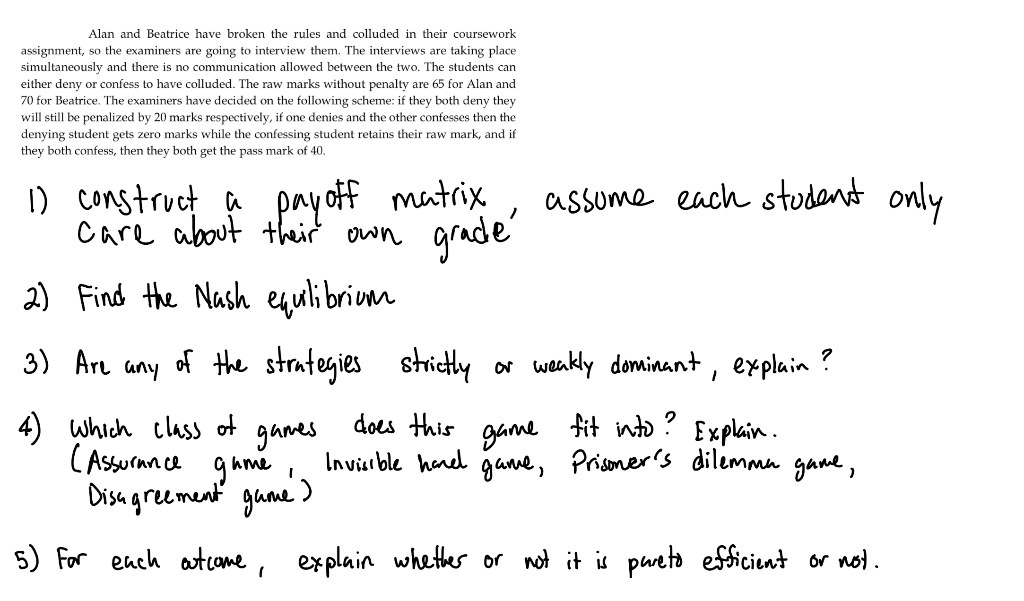 Alan and Beatrice have broken the rules and colluded in their coursework
assignment, so the examiners are going to interview them. The interviews are taking place
simultaneously and there is no communication allowed between the two. The students can
either deny or confess to have colluded. The raw marks without penalty are 65 for Alan and
70 for Beatrice. The examiners have decided on the following scheme: if they both deny they
will still be penalized by 20 marks respectively, if one denies and the other confesses then the
denying student gets zero marks while the confessing student retains their raw mark, and if
they both confess, then they both get the pass mark of 40.
1) construct a payoff matrix, assume each student only
care about their own grade
2) Find the Nash equilibrium
3) Are any of the strategies strictly or weakly dominant, explain?
4) Which class of games does this game fit into? Explain.
(Assurance game, Invisible hand game, Prisoner's dilemma game,
Disagreement game)
5) For each outcome, explain whether or not it is pareto efficient or not.